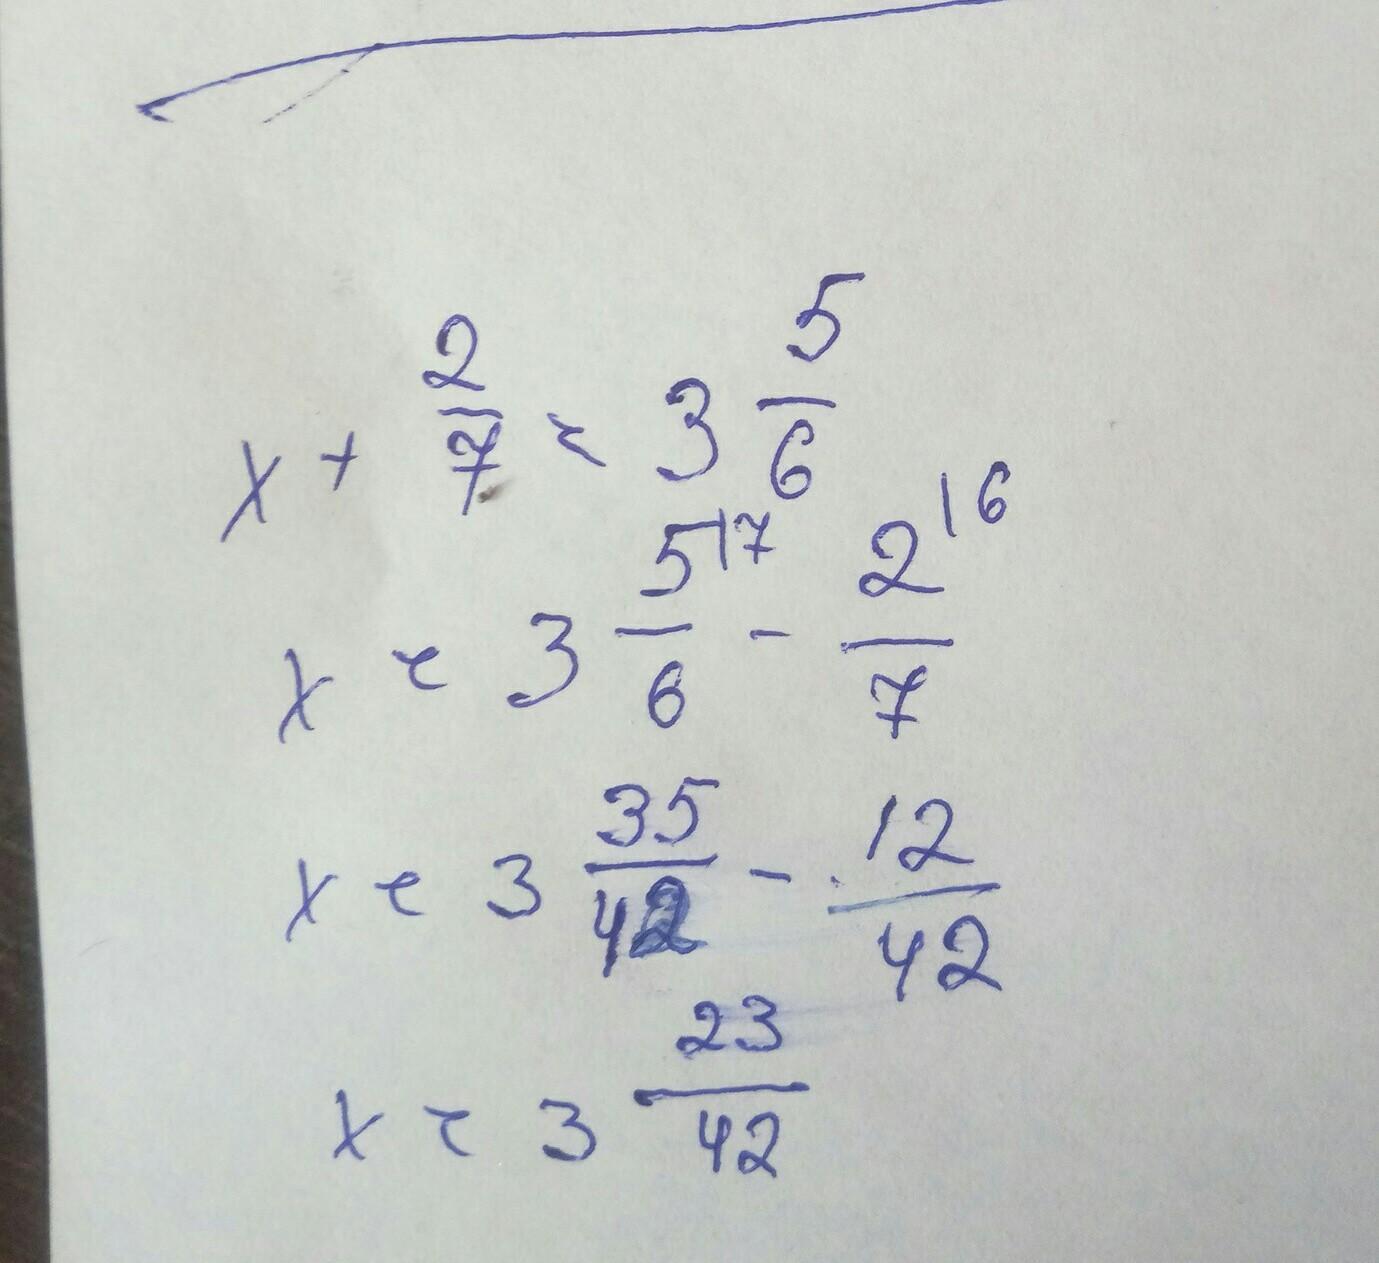 x + 2/7 = 3 5/6
x = 3 5|7/6 - 2|6/7
x = 3 35/42 - 12/42
x = 3 23/42